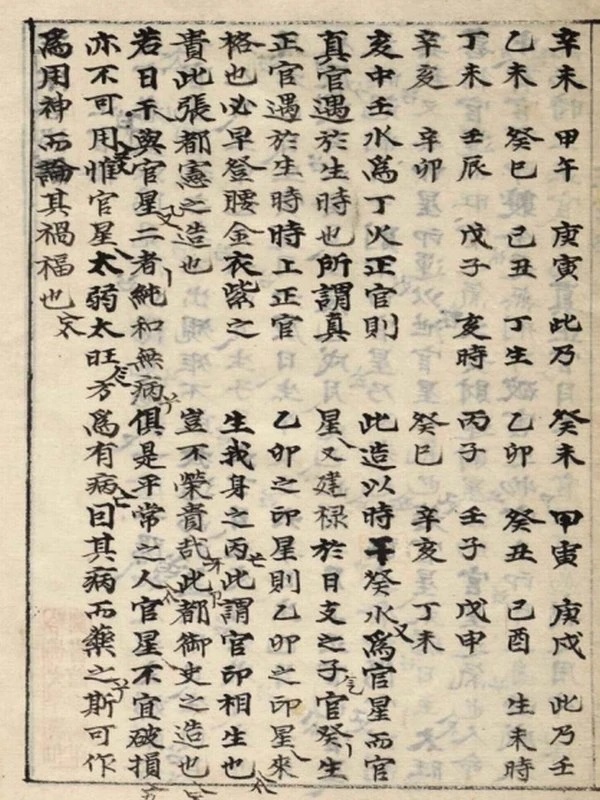 辛未 甲午 庚寅 此乃
乙未 癸巳 己丑 丁生
丁未 壬辰 戊子 亥時
辛亥 辛卯
亥中壬水爲丁火正官則
真官遇於生時也所謂真
正官遇於生時時上正官
格也必早登腰金衣紫之
貴此張都憲之造也
癸未 甲寅 庚戌 此乃壬
乙卯 癸丑 己酉 生未時
丙子 壬子 戊申
癸巳 辛亥 丁未
此造以時干癸水爲官星而官
星又建祿於日支之子官癸生
乙卯之印星則乙卯之印星來
生我身之丙此謂官印相生也
豈不榮貴哉此都御史之造也
若日干與官星二者純和無病俱是平常之人官星不宜破損
亦不可用惟官星太弱太旺方爲有病因其病而藥之斯可作
爲用神而論其禍福也